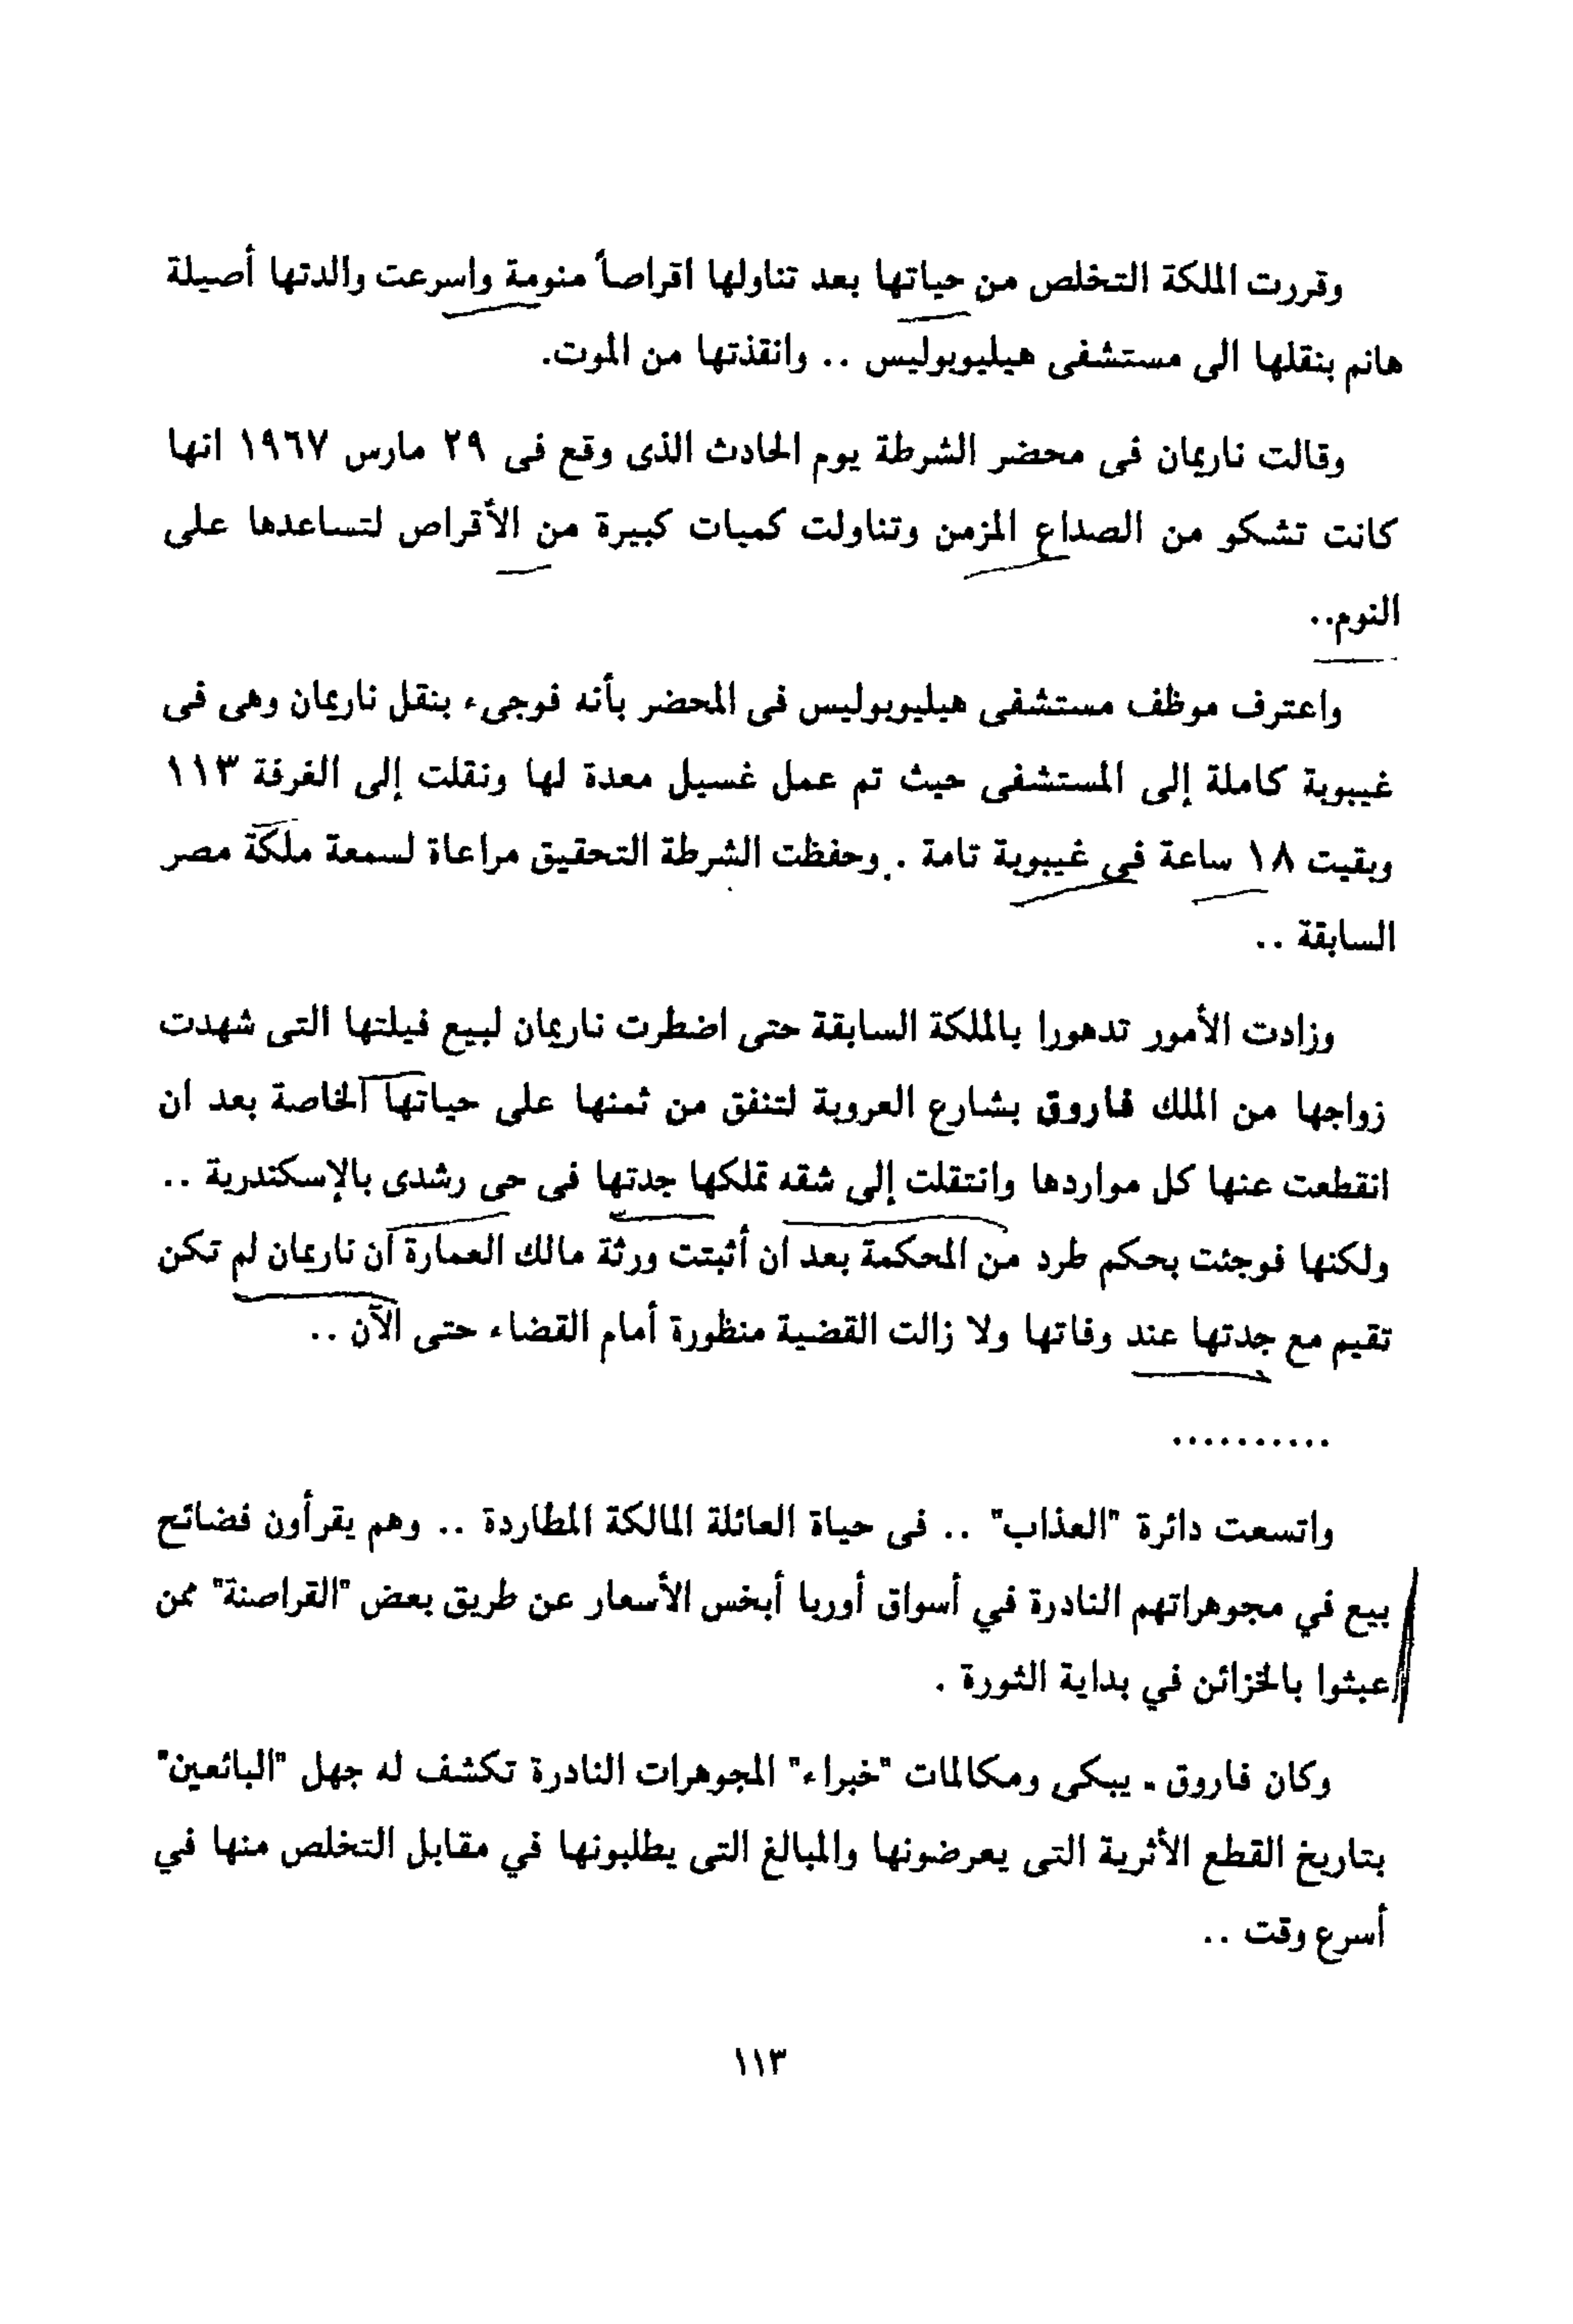 وقررت الملكة التخلص من حياتها بعد تناولها اقراصاً منومة واسرعت والدتها أصيلة
هانم بنقلها الى مستشفى هيليوبوليس .. وانقذتها من الموت.
وقالت ناريمان فى محضر الشرطة يوم الحادث الذى وقع فى ٢٩ مارس ١٩٦٧ انها
كانت تشكو من الصداع المزمن وتناولت كميات كبيرة من الأقراص لتساعدها على
النوم..
واعترف موظف مستشفى هيليوبوليس فى المحضر بأنه فوجىء بنقل ناريمان وهى فى
غيبوبة كاملة إلى المستشفى حيث تم عمل غسيل معدة لها ونقلت إلى الغرفة ١١٣
وبقيت ١٨ ساعة فى غيبوبة تامة .. وحفظت الشرطة التحقيق مراعاة لسمعة ملكة مصر
السابقة ..
وزادت الأمور تدهورا بالملكة السابقة حتى اضطرت ناريمان لبيع فيلتها التى شهدت
زواجها من الملك فاروق بشارع العروبة لتنفق من ثمنها على حياتها الخاصة بعد ان
انقطعت عنها كل مواردها وانتقلت إلى شقه تملكها جدتها فى حى رشدى بالإسكندرية ..
ولكنها فوجئت بحكم طرد من المحكمة بعد ان أثبتت ورثة مالك العمارة ان ناريمان لم تكن
تقيم مع جدتها عند وفاتها ولا زالت القضية منظورة أمام القضاء حتى الآن ..
..........
واتسعت دائرة "العذاب" .. فى حياة العائلة المالكة المطاردة .. وهم يقرأون فضائح
بيع في مجوهراتهم النادرة في أسواق أوربا أبخس الأسعار عن طريق بعض "القراصنة" ممن
عبثوا بالخزائن في بداية الثورة .
وكان فاروق - يبكى ومكالمات "خبراء" المجوهرات النادرة تكشف له جهل "البائعين"
بتاريخ القطع الأثرية التى يعرضونها والمبالغ التى يطلبونها في مقابل التخلص منها في
أسرع وقت ..
١١٣